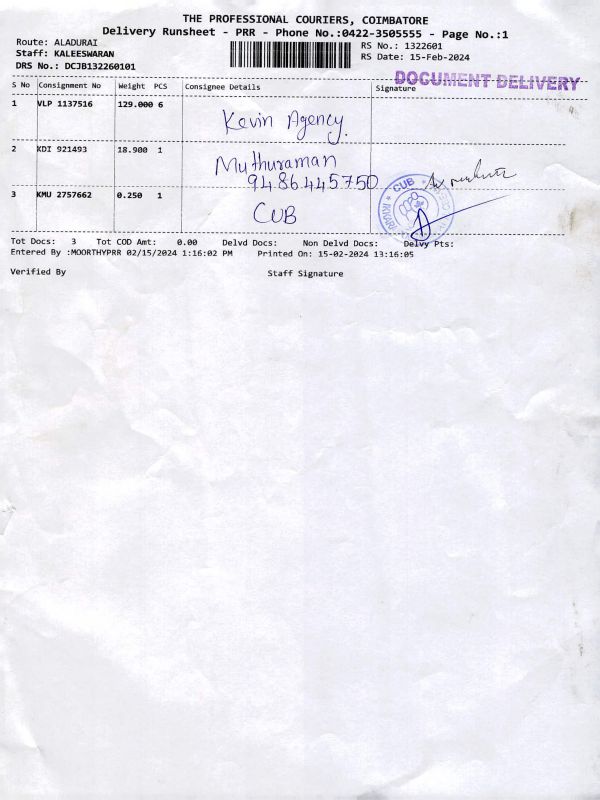 THE PROFESSIONAL COURIERS, COIMBATORE
Delivery Runsheet - PRR - Phone No.:0422-3505555 - Page No.:1
Route: ALADURAI
Staff: KALEESWARAN
DRS No.: DCJB132260101
RS No.: 1322601
RS Date: 15-Feb-2024
DOCUMENT DELIVERY
S No Consignment No Weight PCS Consignee Details Signature
1 VLP 1137516 129.000 6 Kevin Agency.
2 KDI 921493 18.900 1 Muthuraman
9486445750
3 KMU 2757662 0.250 1 CUB
CUB
Tot Docs: 3 Tot COD Amt: 0.00 Delvd Docs: Non Delvd Docs: Delvy Pts:
Entered By :MOORTHYPRR 02/15/2024 1:16:02 PM Printed On: 15-02-2024 13:16:05
Verified By Staff Signature